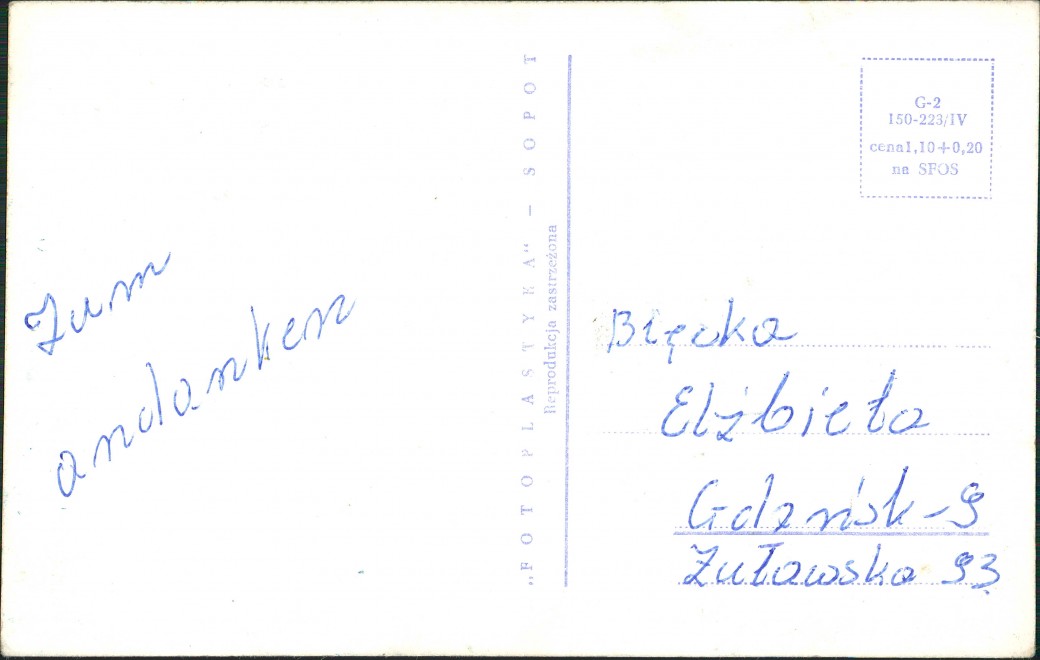 Zum
andanken
„FOTOPLASTYKA" – SOPOT
Reprodukcja zastrzeżona
G-2
I50-223/IV
cena 1,10+0,20
na SFOS
Błęcka
Elżbieta
Gdańsk-9
Zułowska 93